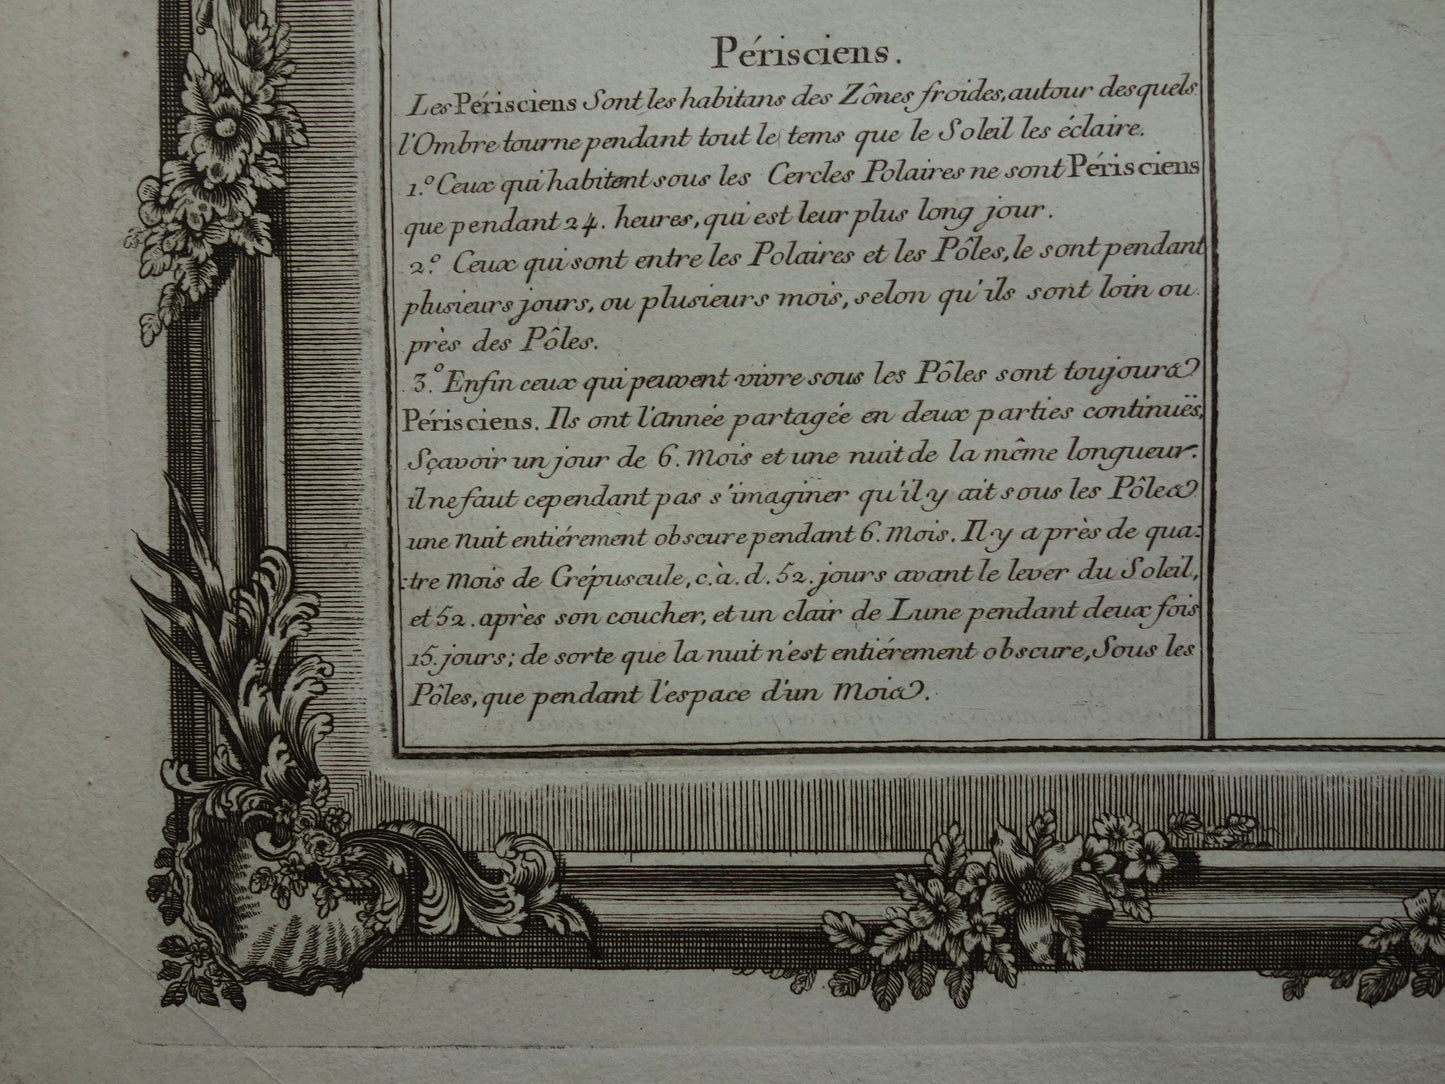 Périsciens.
Les Périsciens Sont les habitans des Zônes froides, autour desquels
l'Ombre tourne pendant tout le tems que le Soleil les éclaire.
1.º Ceux qui habitent sous les Cercles Polaires ne sont Périsciens
que pendant 24. heures, qui est leur plus long jour.
2.º Ceux qui sont entre les Polaires et les Pôles, le sont pendant
plusieurs jours, ou plusieurs mois, selon qu'ils sont loin ou
près des Pôles.
3.º Enfin ceux qui peuvent vivre sous les Pôles sont toujours
Périsciens. Ils ont l'année partagée en deux parties continuës,
Sçavoir un jour de 6. Mois et une nuit de la même longueur.
il ne faut cependant pas s'imaginer qu'il y ait sous les Pôles
une Nuit entiérement obscure pendant 6. Mois. Il y a près de qua:
:tre Mois de Crépuscule, c. à. d. 52. jours avant le lever du Soleil,
et 52. après son coucher, et un clair de Lune pendant deux fois
15. jours; de sorte que la nuit n'est entiérement obscure, Sous les
Pôles, que pendant l'espace d'un Mois.